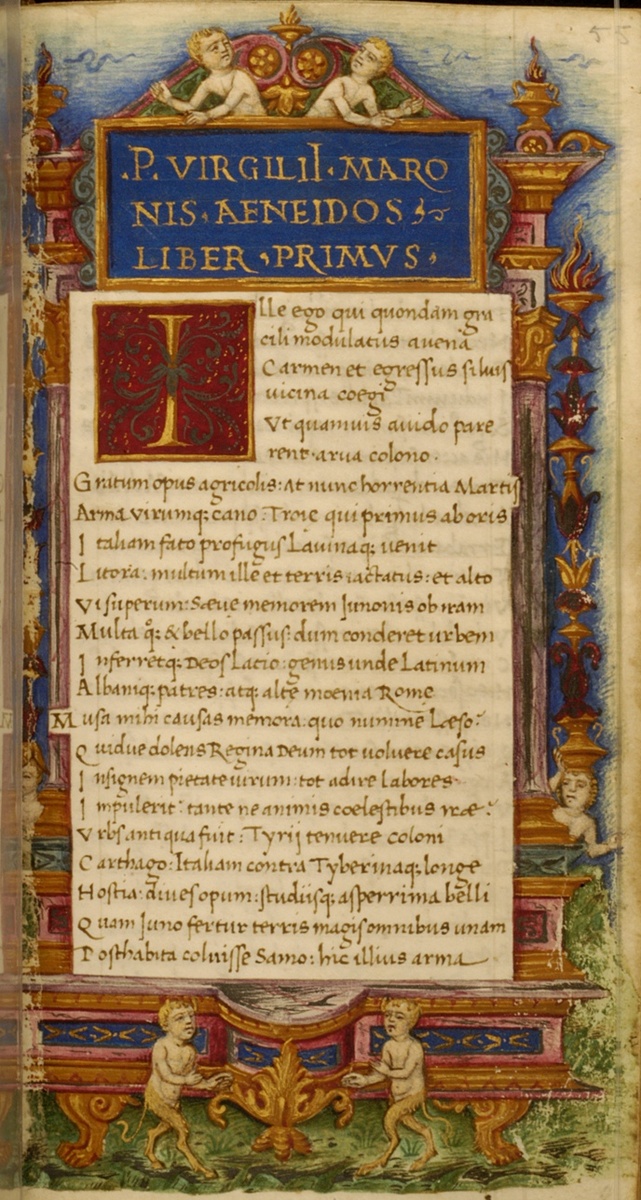 55
.P. VIRGILII . MARO
NIS . AENEIDOS
LIBER . PRIMVS .
Ille ego qui quondam gra
cili modulatus avena
Carmen et egressus siluis
uicina coegi
Vt quamuis auido pare
rent arua colono .
Gratum opus agricolis: At nunc horrentia Martis
Arma virumq; cano : Troie qui primus ab oris
Italiam fato profugus Lavinaq; uenit
Litora: multum ille et terris iactatus: et alto
Vi superum: Sæue memorem Iunonis ob iram
Multa qͦ; & bello passus: dum conderet urbem
Inferretq; Deos Latio: genus unde Latinum
Albaniq; patres: atq; alte moenia Rome
Musa mihi causas memora: quo numine Læso:
Quidue dolens Regina Deum tot uoluere casus
Insignem pietate uirum: tot adire Labores
Impulerit: tante ne animis coelestibus iræ:
Vrbs antiqua fuit: Tyrij tenuere coloni
Carthago: Italiam contra Tyberinaq; longe
Hostia: diues opum: studiisq; asperrima belli
Quam Iuno fertur terris magis omnibus unam
Posthabita coluisse Samo: hic illius arma